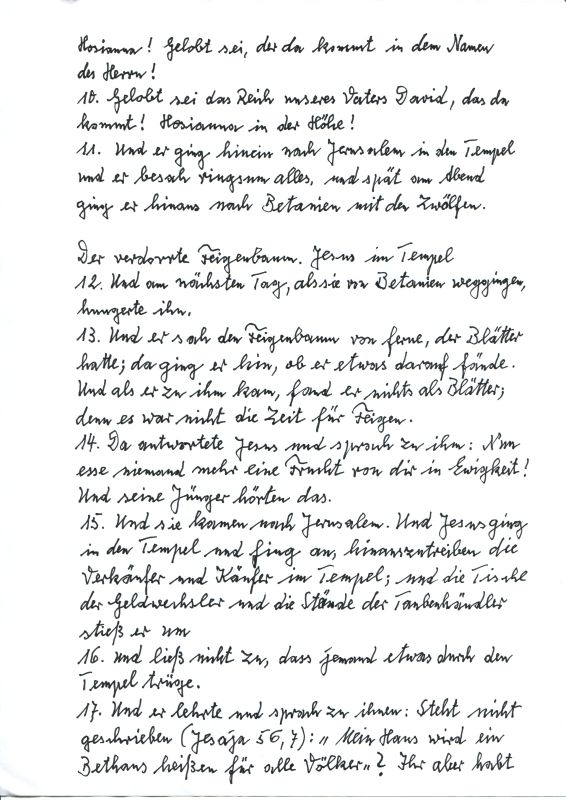 Hosianna! Gelobt sei, der da kommt in dem Namen
des Herrn!
10. Gelobt sei das Reich unseres Vaters David, das da
kommt! Hosianna in der Höhe!
11. Und er ging hinein nach Jerusalem in den Tempel
und er besah ringsum alles, und spät am Abend
ging er hinaus nach Betanien mit den Zwölfen.
Der verdorrte Feigenbaum. Jesus im Tempel
12. Und am nächsten Tag, als sie von Betanien weggingen,
hungerte ihn.
13. Und er sah den Feigenbaum von ferne, der Blätter
hatte; da ging er hin, ob er etwas darauf fände.
Und als er zu ihm kam, fand er nichts als Blätter;
denn es war nicht die Zeit für Feigen.
14. Da antwortete Jesus und sprach zu ihm: Nun
esse niemand mehr eine Frucht von dir in Ewigkeit!
Und seine Jünger hörten das.
15. Und sie kamen nach Jerusalem. Und Jesus ging
in den Tempel und fing an, hinauszutreiben die
Verkäufer und Käufer im Tempel; und die Tische
der Geldwechsler und die Stände der Taubenhändler
stieß er um
16. und ließ nicht zu, dass jemand etwas durch den
Tempel trüge.
17. Und er lehrte und sprach zu ihnen: Steht nicht
geschrieben (Jesaja 56,7): „Mein Haus wird ein
Bethaus heißen für alle Völker"? Ihr aber habt